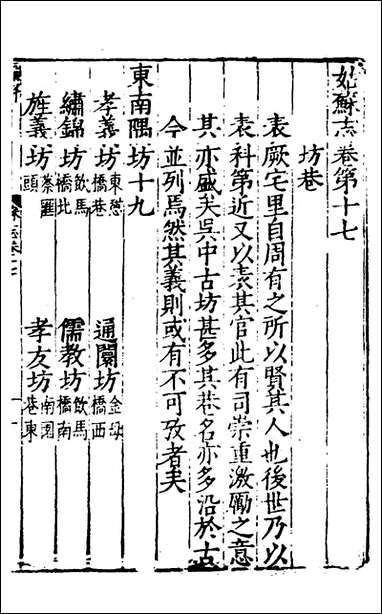 姑蘇志卷第十七
坊巷
表厥宅里自周有之所以賢其人也後世乃以
表科第近又以表其官此有司崇重激勵之意
其亦盛矣吳中古坊甚多其巷名亦多沿於古
今並列焉然其義則或有不可攷者矣
東南隅坊十九
孝義坊東憩橋巷 通闤坊金母橋西
繡錦坊飲馬橋北 儒教坊飲馬橋南
旌義坊蔡匯頭 孝友坊南園巷東